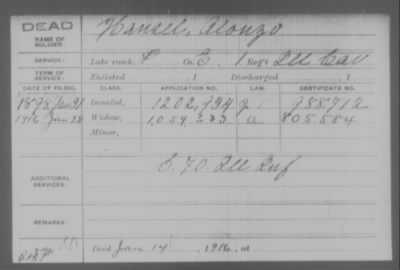 DEAD
NAME OF SOLDIER: Hansel, Alonzo
SERVICE: Late rank, P Co. E, 1 Reg't Ill Cav
TERM OF SERVICE: Enlisted , 1 Discharged , 1
DATE OF FILING. CLASS. APPLICATION NO. LAW. CERTIFICATE NO.
1898 Invalid, 1202,934 988,712
1916 Jan 28 Widow, 1059,233 a 805584
Minor,
ADDITIONAL SERVICES: E. 70. Ill Inf
REMARKS:
Died Jan 14, 1916, at